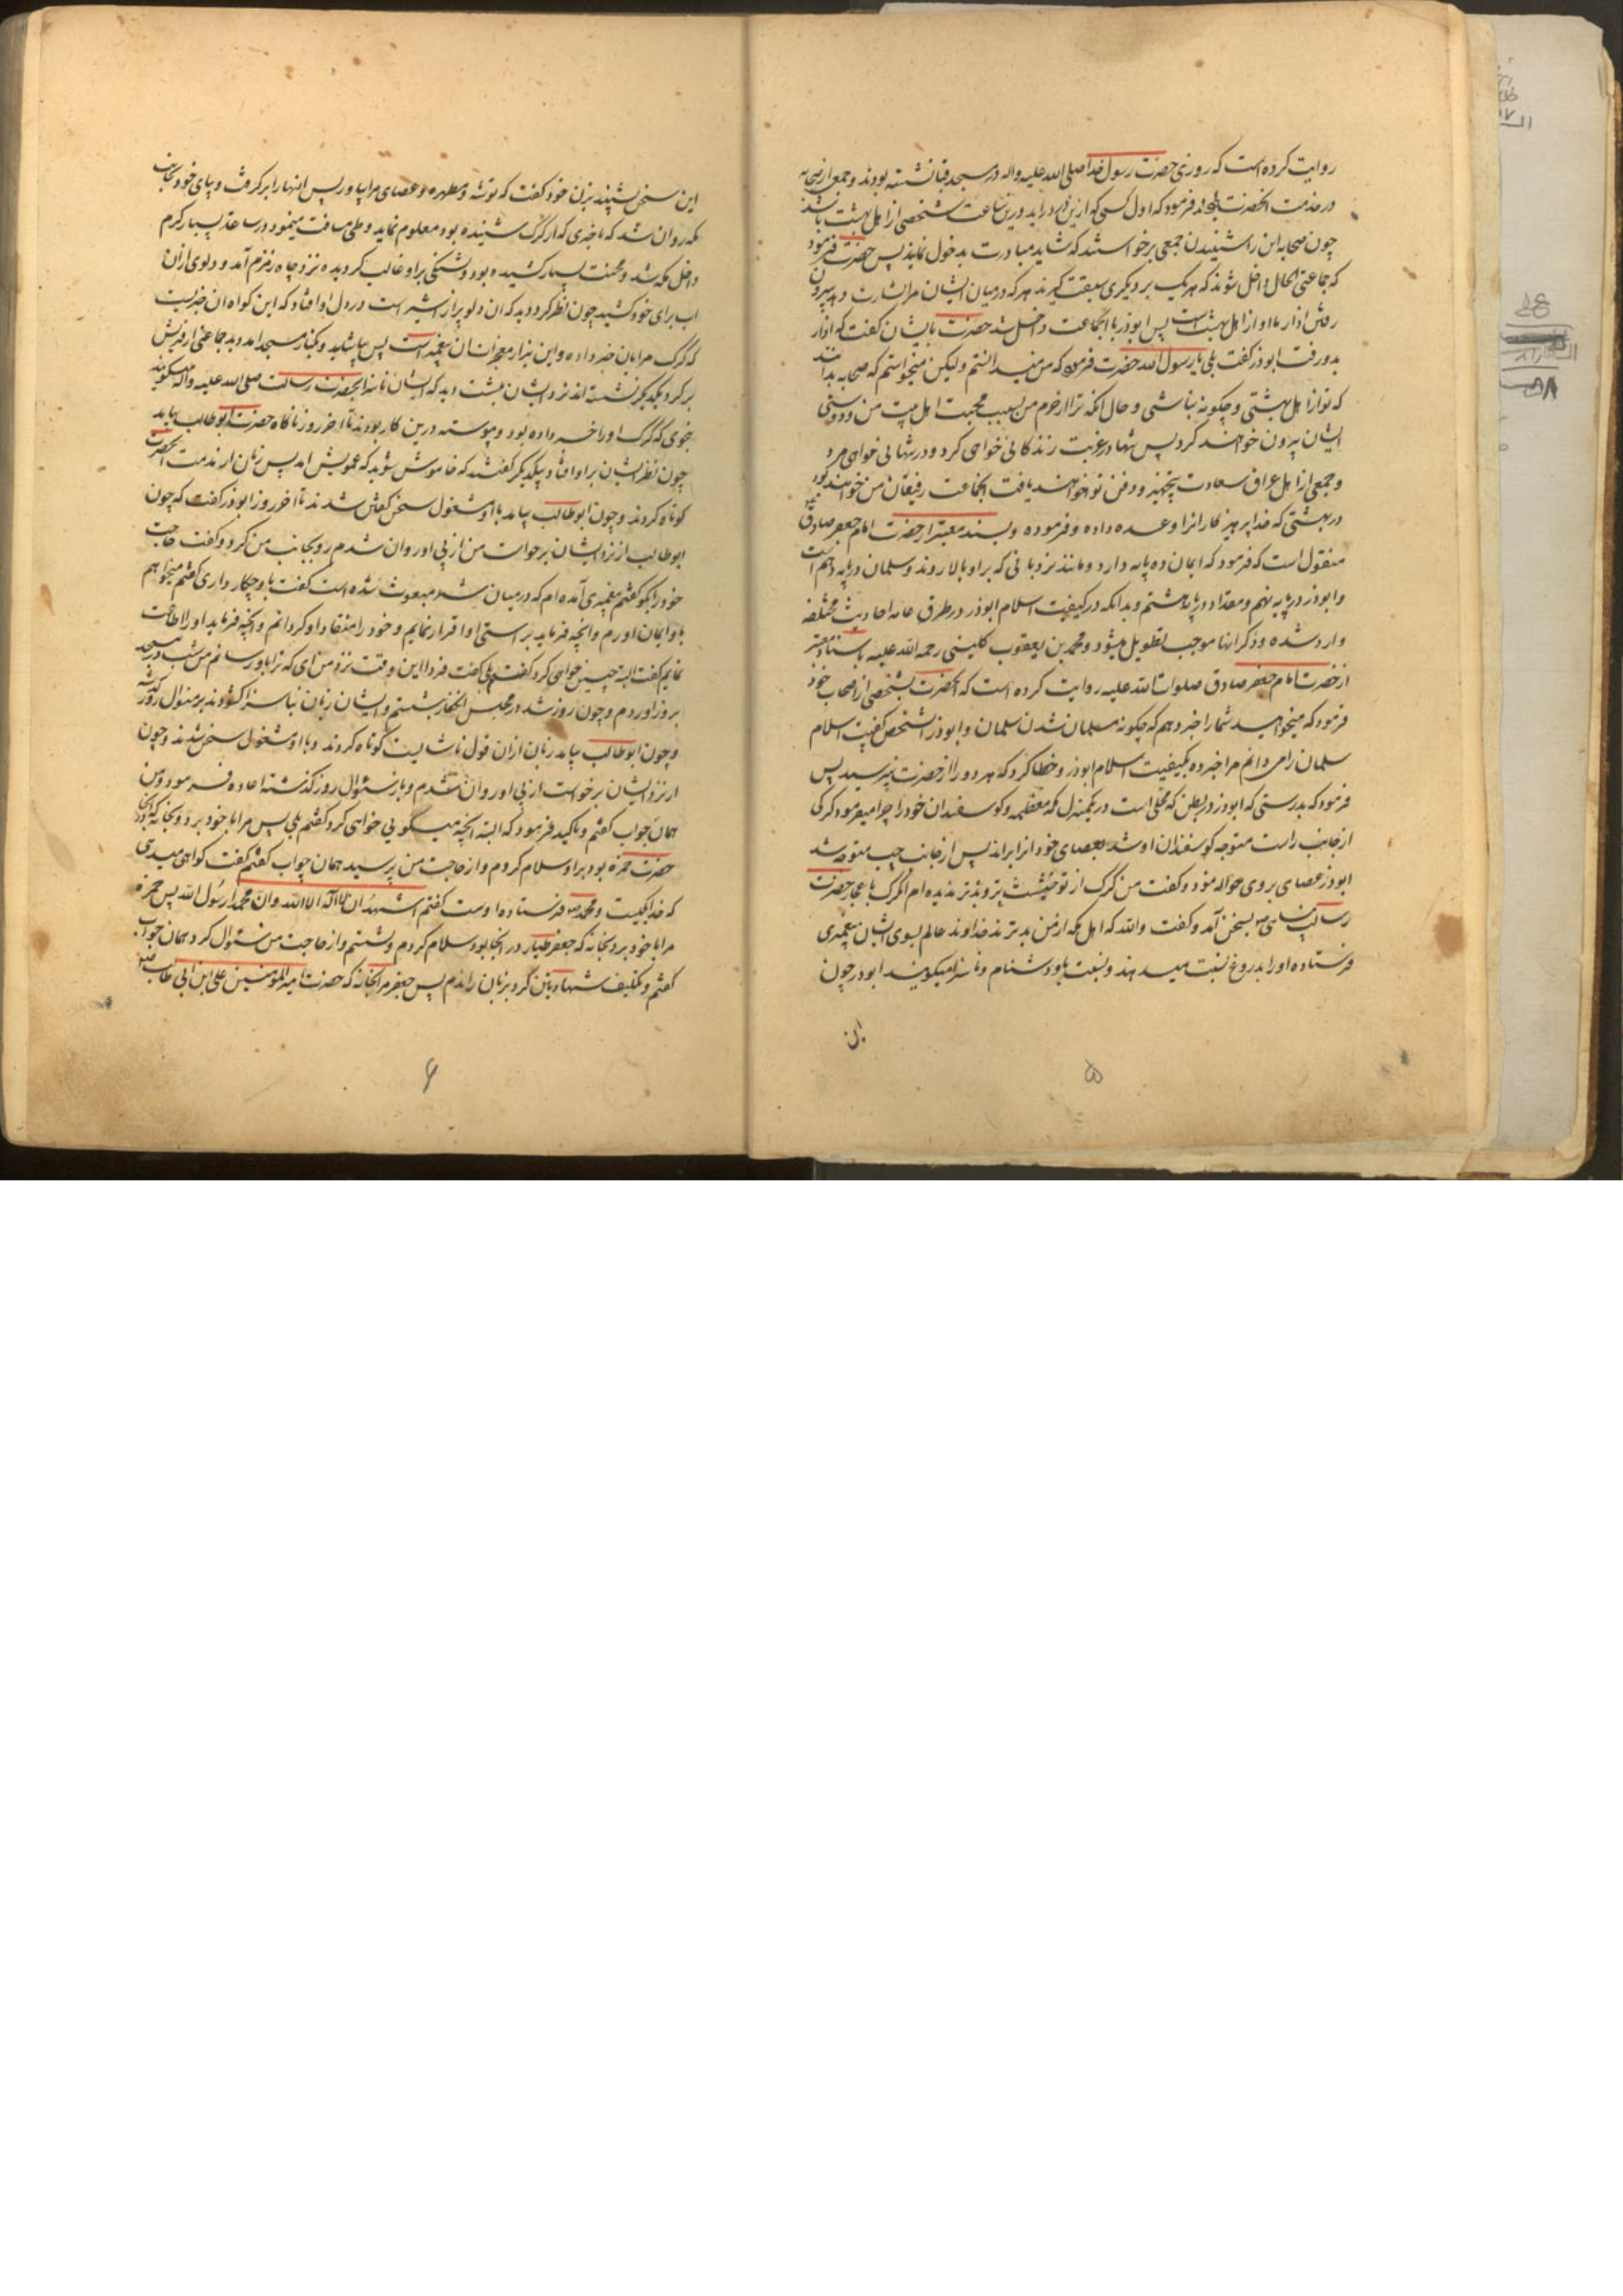 روایت کرده است که روزی حضرت رسول خدا صلی الله علیه واله در مسجد قبا نشسته بودند و جمعی از صحابه
در خدمت آنحضرت بودند فرمود که اول کسی که ازین در درآید درین ساعت شخصی از اهل بهشت باشد
چون صحابه این را شنیدند جمعی برخواستند که شاید مبادرت بدخول نمایند پس حضرت فرمود
که جماعتی الحال داخل شوند که هر یک بر دیگری سبقت گیرند هر که درمیان ایشان مرا بشارت دهد به بیرون
رفتن اذار ماه او از اهل بهشت است پس ابوذر با آنجماعت داخل شد حضرت بایشان گفت که اذار
بدر رفت ابوذر گفت بلی یا رسول الله حضرت فرمود که من میدانستم ولیکن میخواستم که صحابه بدانند
که تو از اهل بهشتی و چگونه نباشی و حال آنکه ترا از حرم من بسبب محبت اهل بیت من و دوستی
ایشان بیرون خواهند کرد پس تنها در غربت زندکانی خواهی کرد و در تنهایی خواهی مرد
و جمعی از اهل عراق سعادت تجهیز و دفن تو خواهند یافت آنجماعت رفیقان من خواهند بود
در بهشتی که خدا پرهیزکارانرا وعده داده و فرموده و بسند معتبر از حضرت امام جعفر صادق
منقول است که فرمود که ایمان ده پایه دارد و مانند نردبانی که بر او بالا روند و سلمان در پایه دهم است
و ابوذر در پایه نهم و مقداد در پایه هشتم و بدانکه در کیفیت اسلام ابوذر در طرق عامه احادیث مختلفه
وارد شده و ذکر انها موجب تطویل میشود و محمد بن یعقوب کلینی رحمه الله علیه باسناد معتبر
از حضرت امام جعفر صادق صلوات الله علیه روایت کرده است که آنحضرت بشخصی از اصحاب خود
فرمود که میخواهید شما را خبر دهم که چگونه مسلمان شدن سلمان و ابوذر آنشخص گفت کیفیت اسلام
سلمان را می دانم مرا خبر ده بکیفیت اسلام ابوذر و خطا کرد که هر دو را از حضرت نپرسید پس
فرمود که بدرستی که ابوذر در بطن که محلی است در یکمنزل مکه معظمه و کوسفندان خود را چرا میفرمود کرکی
از جانب راست متوجه کوسفندان او شد بعصای خود انرا براند پس از جانب چپ متوجه شد
ابوذر عصای بر وی حواله نمود و گفت من کرک از تو خبیث تر و بدتر ندیده ام آن کرک باعجاز حضرت
رسالت پناهی بسخن آمد و گفت والله که اهل مکه از من بدترند خداوند عالم بسوی ایشان پیغمبری
فرستاده او را بدروغ نسبت میدهند و نسبت باو دشنام و ناسزا میکویند ابوذر چون
این
۵
این سخن بشنید بزن خود گفت که توشه و مطهره و عصای مرا بیاور پس انها را برگرفت و بپای خود بجانب
مکه روان شد که تا خبری که از کرک شنیده بود معلوم نماید و طی مسافت مینمود در ساعت بسیار گرم
داخل مکه شد و محنت بسیار کشیده بود و تشنکی بر او غالب کردیده نزد چاه زمزم آمد و دلوی از ان
اب برای خود کشید چون نظر کرد دید که ان دلو پر از شیر است در دل او افتاد که این گواه ان خبریست
که کرک مرا بان خبر داده و این نیز از معجزات ان پیغمبر است پس بیاشامید و بکنار مسجد امد دید جماعتی از قریش
بر کرد یکدیگر نشسته اند نزد ایشان بنشست دید که ایشان ناسزا بحضرت رسالت صلی الله علیه واله میکویند
بنحوی که کرک او را خبر داده بود و پیوسته درین کار بودند تا اخر روز ناکاه حضرت ابوطالب بیامد
چون نظر ایشان بر او افتاد بیکدیکر گفتند که خاموش شوید که عمویش امد پس زبان از مذمت آنحضرت
کوتاه کردند و چون ابوطالب بیامد با او مشغول سخن گفتن شدند تا اخر روز ابوذر گفت که چون
ابوطالب از نزد ایشان برخواست من از پی او روان شدم رو بجانب من کرد و گفت حاجت
خود را بگو گفتم پیغمبری آمده ام که درمیان شما مبعوث شده است گفت با او چکار داری گفتم میخواهم
باو ایمان اورم و آنچه فرماید براستی او اقرار نمایم و خود را منقاد او کردانم و آنچه فرماید او را اطاعت
نمایم گفت البته چنین خواهی کرد گفتم بلی گفت فردا این وقت نزد من ای که ترا باو رسانم من شب در مسجد
بروز اوردم و چون روز شد در مجلس آنکفار بنشستم و ایشان زبان بناسزا کشودند بر منوال روز گذشته
و چون ابوطالب بیامد زبان از ان قول ناشایست کوتاه کردند و با او مشغول سخن شدند و چون
از نزد ایشان برخواست از پی او روان شدم و باز سئوال روز گذشته اعاده فرمود و من
همان جواب گفتم و تاکید فرمود که البته آنچه میگویی خواهی کرد گفتم بلی پس مرا با خود برد و بخانه که در آنجا
حضرت حمزه بود بر او سلام کردم و از حاجت من پرسید همان جواب گفتم گفت گواهی میدهی
که خدا یکیست و محمد فرستاده اوست گفتم اشهد ان لا اله الا الله وان محمدا رسول الله پس حمزه
مرا با خود برد بخانه که جعفر طیار در انجا بود سلام کردم و نشستم و از حاجت من سئوال کرد همان جواب
گفتم و تکلیف شهادتین کرد بر زبان راندم پس جعفر مرا بخانه که حضرت امیرالمؤمنین علی ابن ابی طالب
۶